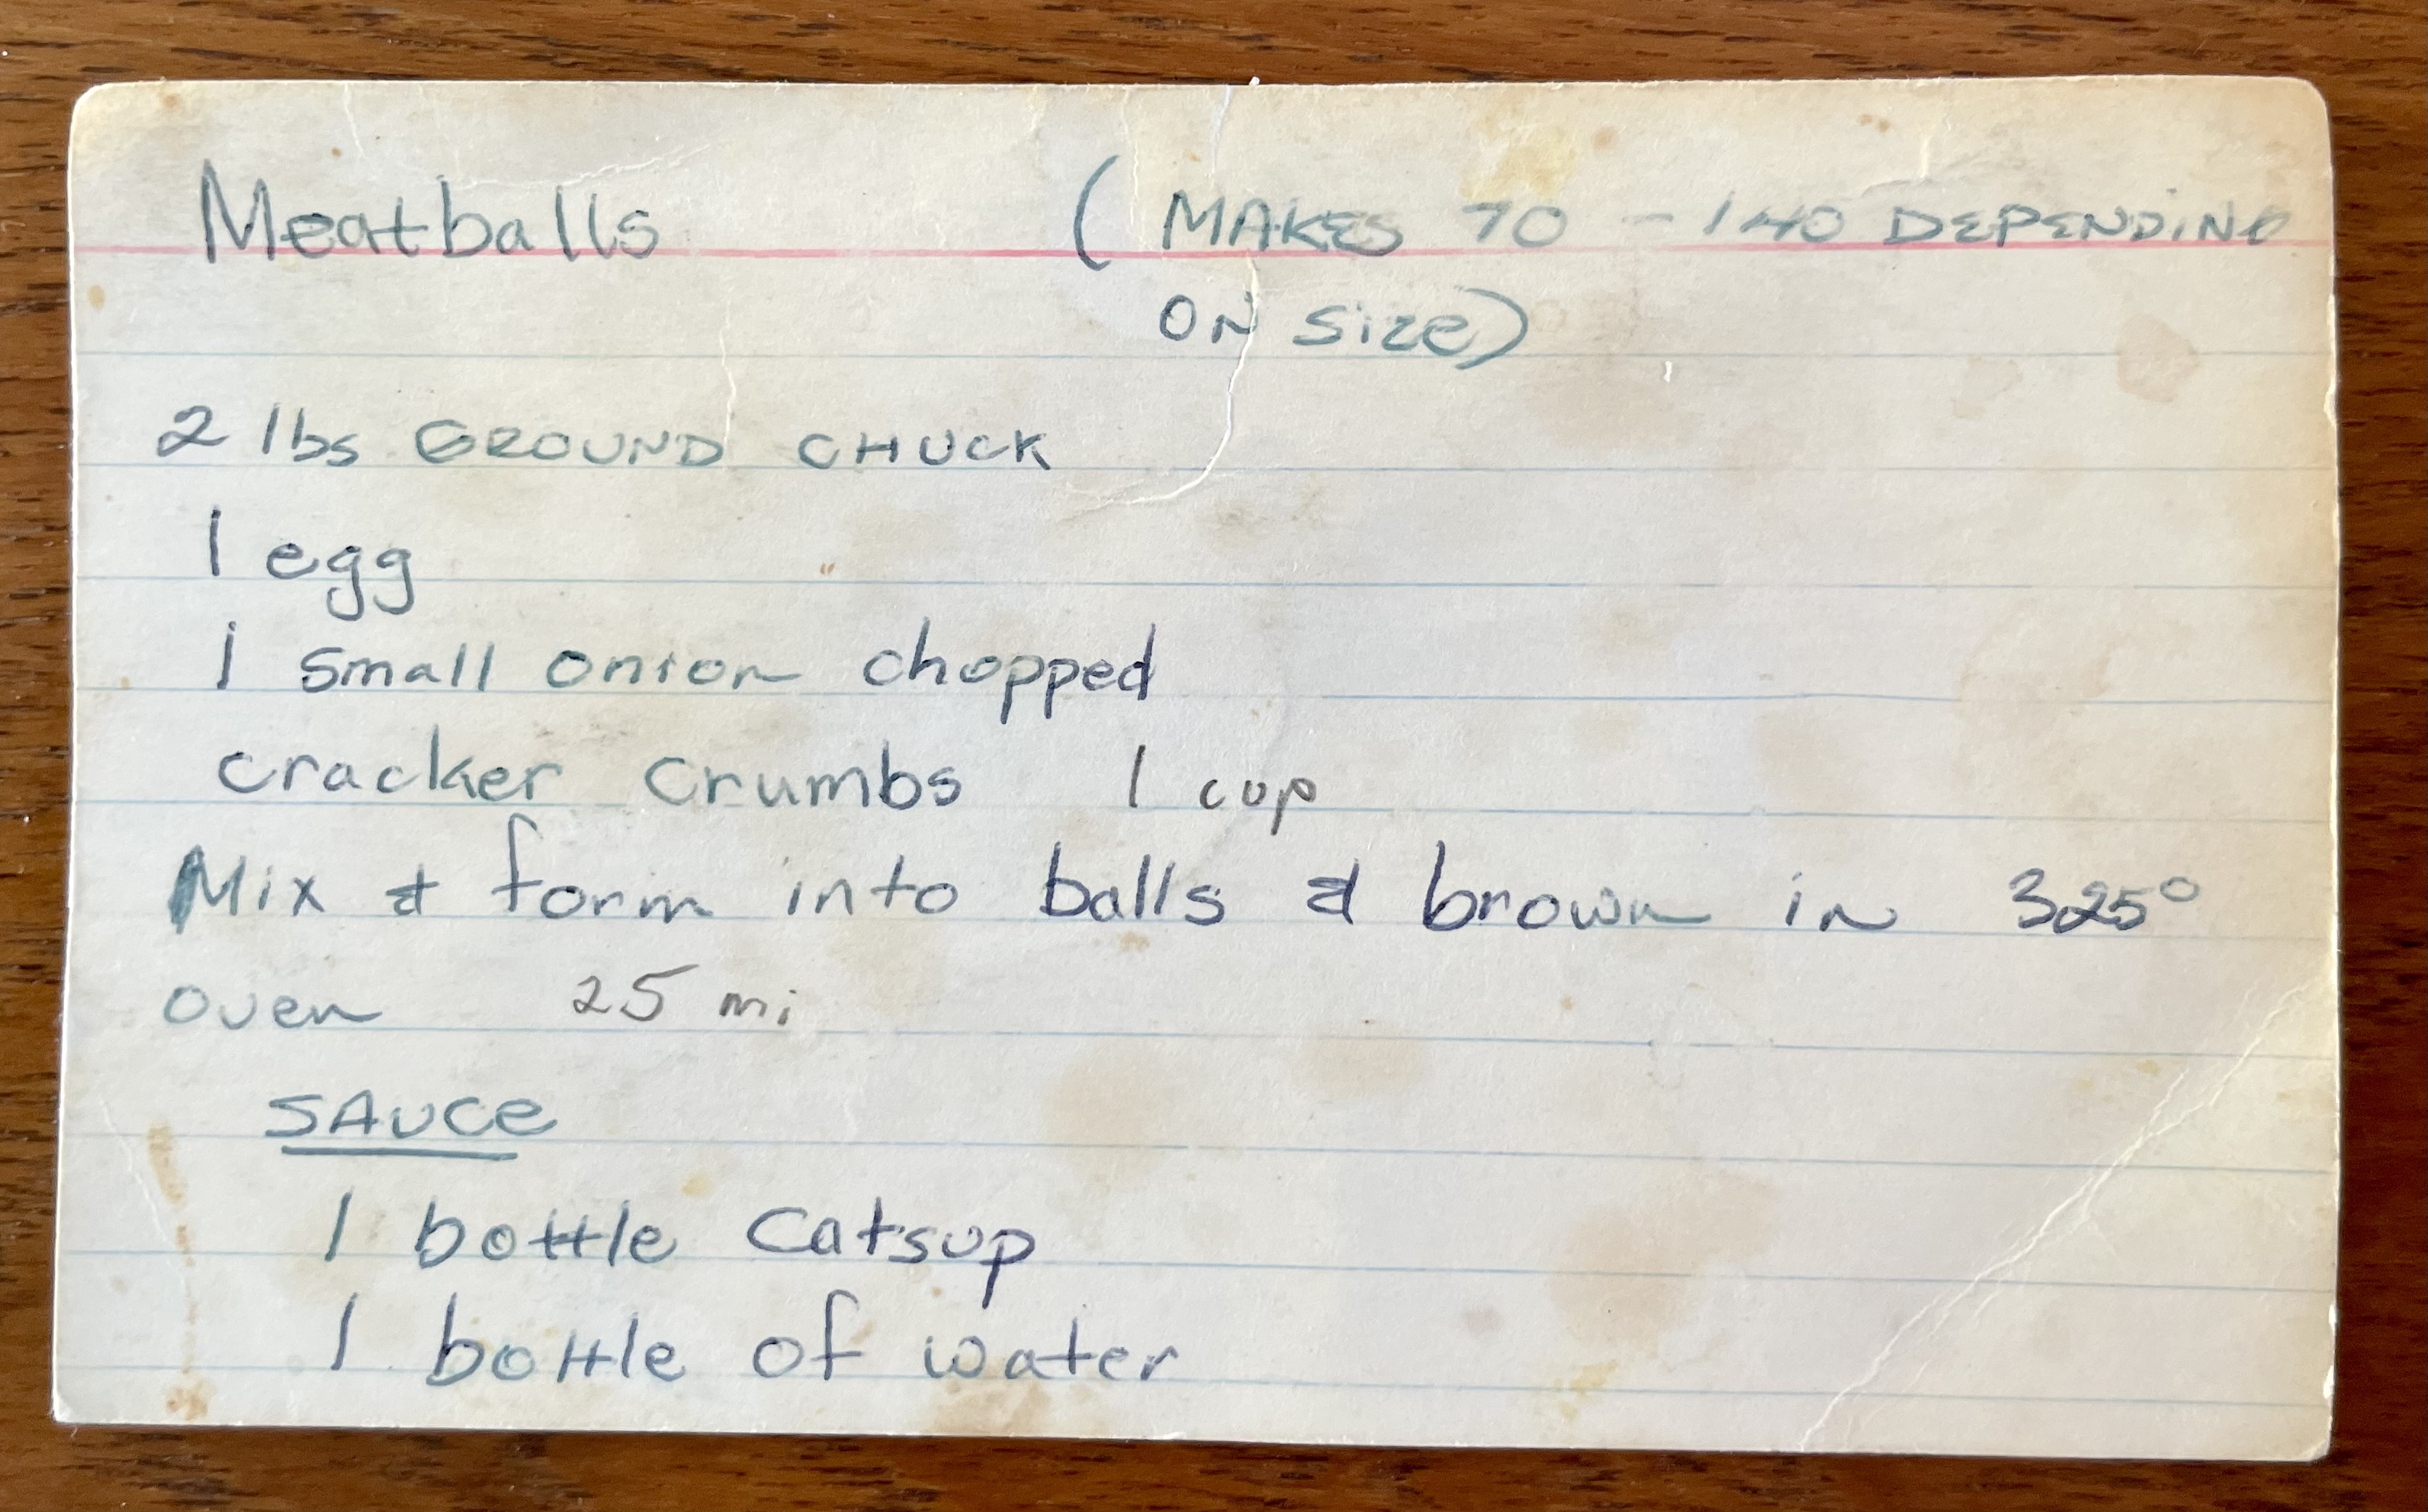 Meatballs (MAKES 70 - 140 DEPENDING
ON Size)
2 lbs GROUND CHUCK
1 egg
1 small onion chopped
cracker crumbs 1 cup
Mix & form into balls & brown in 325°
oven 25 mi
SAUCe
1 bottle Catsup
1 bottle of water